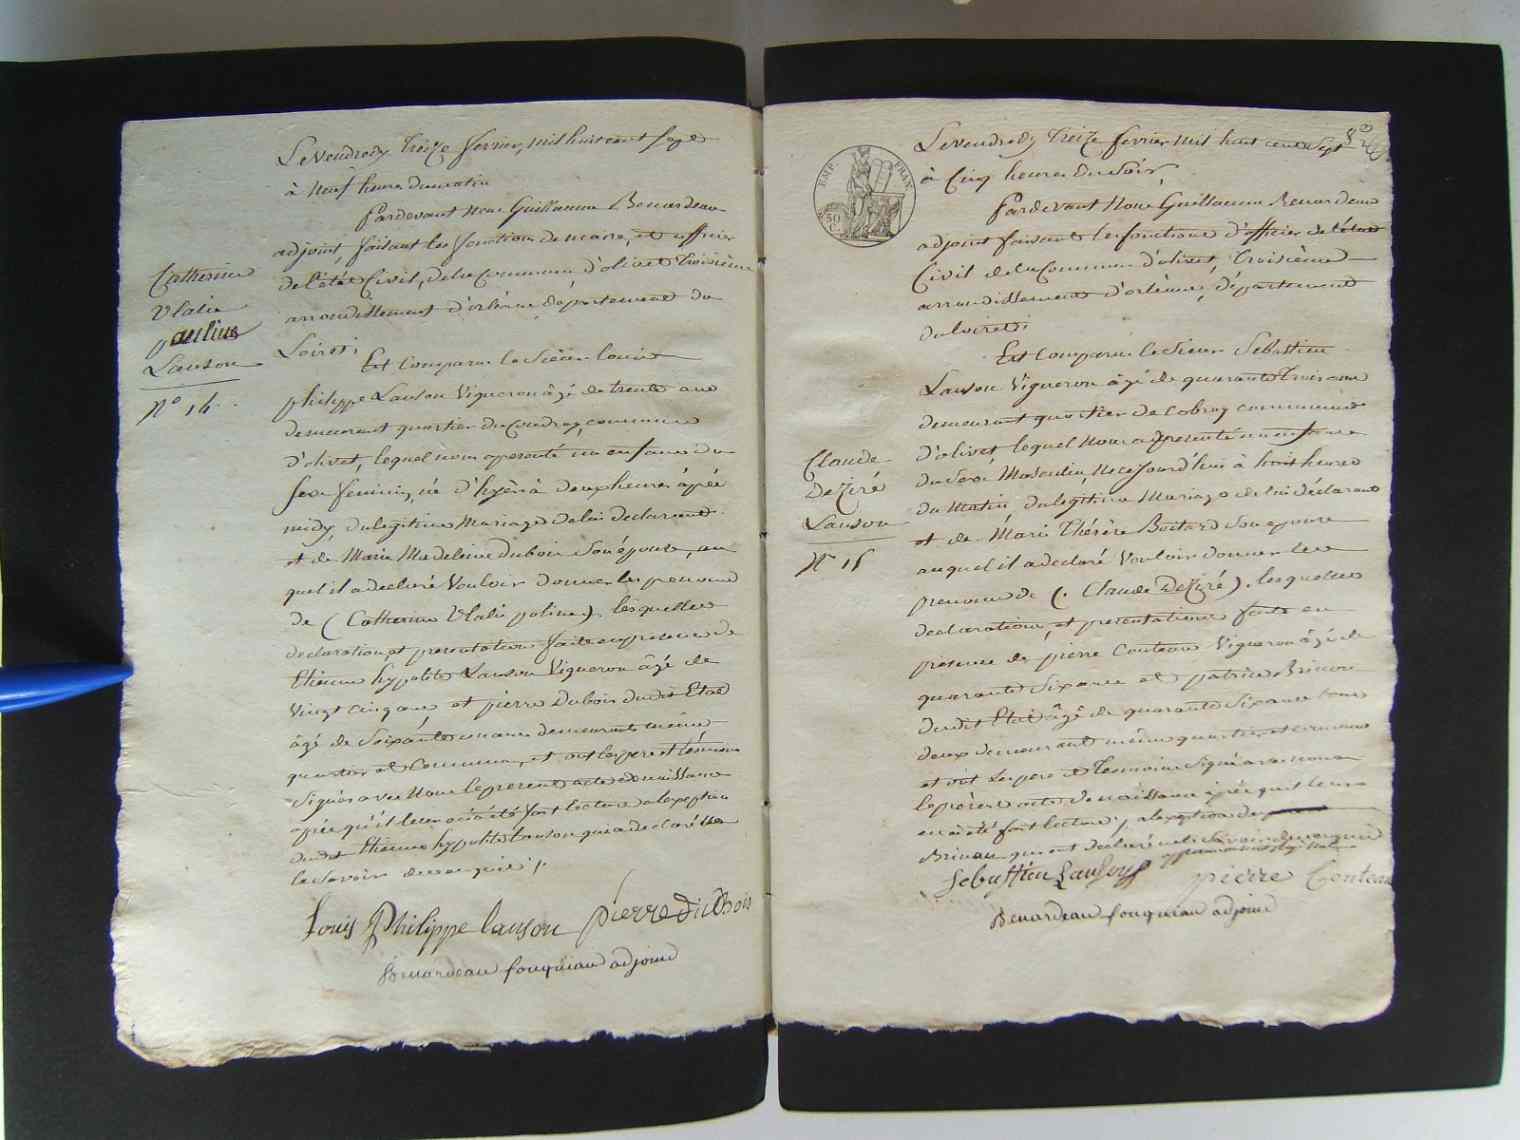 Catherine
Ulalie
pauline
Lanson
N° 14.
Le vendredy treize fevrier, mil huit cent sept
à neuf heures du matin
Pardevant Nous Guillaume Benardeau
adjoint, faisant les fonctions de maire, et officier
de l'état Civil, de la Commune d'olivet troisième
arrondissement d'orléans département du
Loiret;
Est comparu le Sieur louis
philippe Lanson Vigneron âgé de trente ans
demeurant quartier du Coudray, commune
d'olivet, lequel nous a presenté un enfant du
sexe feminin, née d'hyer à deux heures après
midy, du legitime Mariage de lui declarant
et de Marie Madeleine dubois Son épouse, au
quel il a declaré Vouloir donner les prenoms
de (Catherine Ulalie poline), lesquelles
declaration, et presentation faite en presence de
Etienne hypolite Lanson Vigneron âgé de
Vingt cinq ans et pierre Dubois dudit Etat
âgé de Soixante ans demeurants même
quartier et Commune, et ont les pere et témoins
Signés avec Nous le present acte de naissance
après qu'il leur en a été fait lecture a l'exception
dudit Etienne hypolite Lanson qui a declaré ne
le Savoir de ce enquis;
Louis Philippe lanson pierre du Bois
Benardeau fouqueau adjoint
8e
EMP. FRAN.
50 C.
Claude
Deziré
Lanson
N° 15
Le vendredy treize fevrier mil huit cent Sept
à Cinq heures du Soir,
Pardevant Nous Guillaume Benardeau
adjoint faisant les fonctions d'officier de l'état
Civil de la Commune d'olivet, troisième
arrondissement d'orléans, département
du loiret;
Est Comparu le Sieur Sebastien
Lanson Vigneron âgé de quarante trois ans
demeurant quartier de Cobray commune
d'olivet lequel Nous a presenté un enfant
du Sexe Masculin, Né ce jourd'hui à huit heures
du Matin, du legitime Mariage de lui déclarant
et de Marie Thérèse Boitard Son épouse
auquel il a declaré Vouloir donner les
prenoms de (Claude Deziré), lesquelles
declarations, et presentations faite en
presence de pierre Couteau Vigneron âgé de
quarante Six ans et patrice Brinon
dudit Etat âgé de quarante Six ans tous
deux demeurant même quartier et commune
et ont les pere et temoins Signé avec nous
le présent acte de naissance après qu'il leur
en a été fait lecture; a l'exception de
Brinon qui ont déclaré ne le Savoir de ce enquis
Sebastien Lanson pierre Couteau
Benardeau fouqueau adjoint